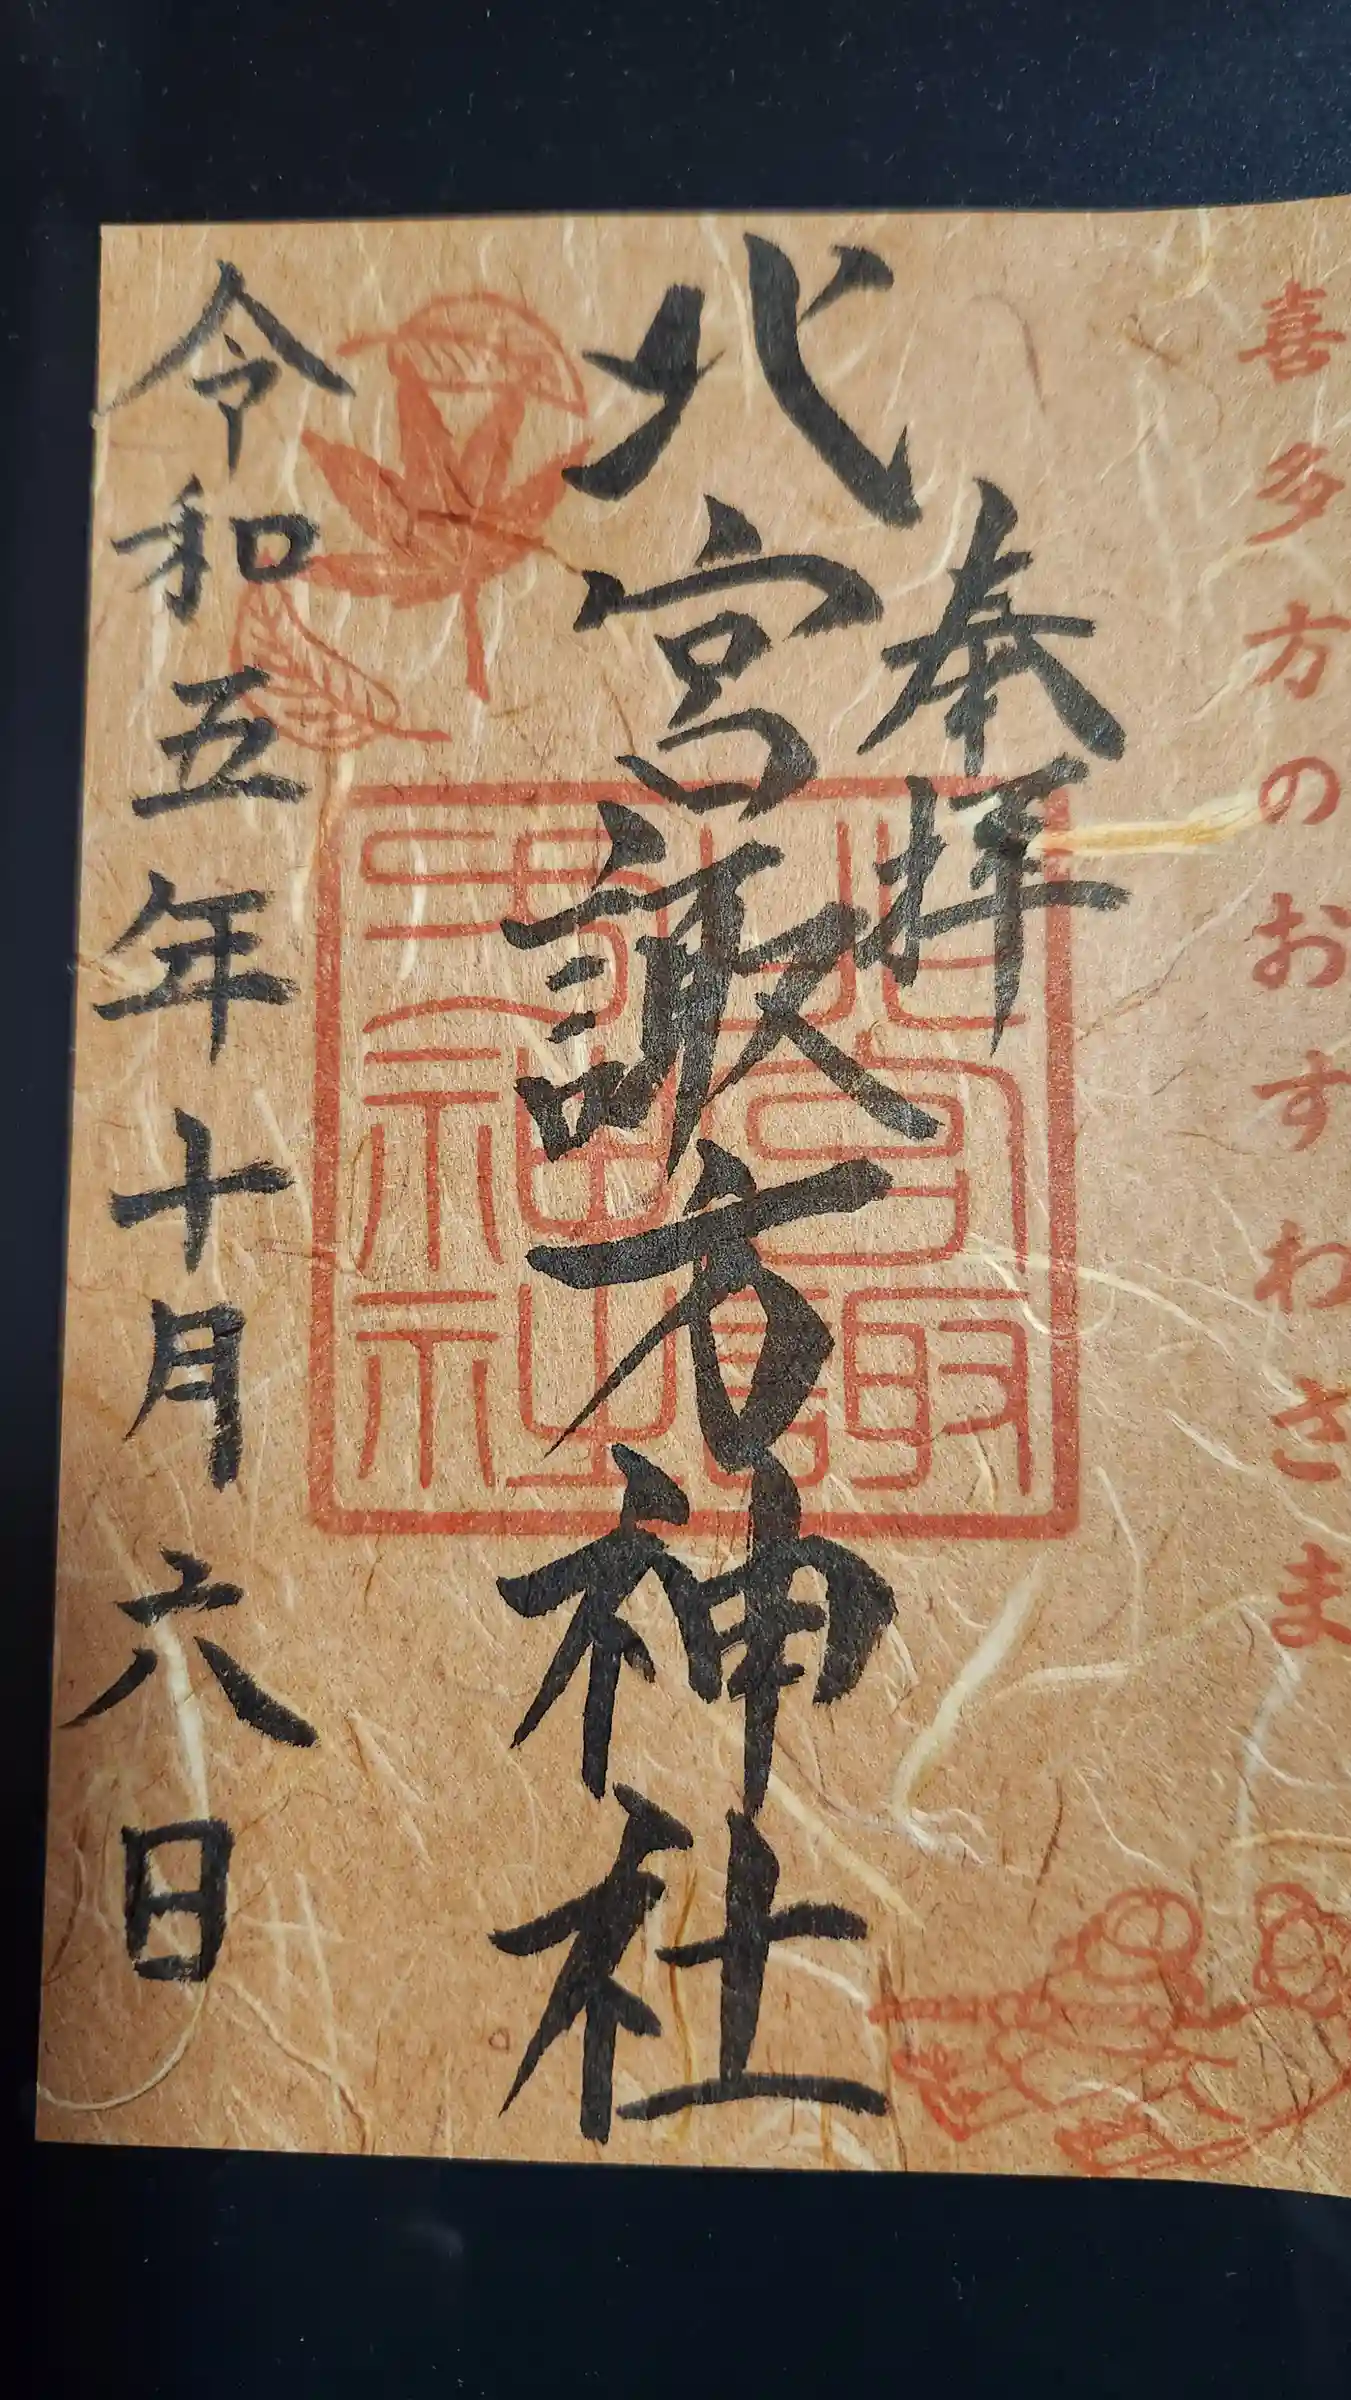 喜多方のおすわさま
奉拝
北宮諏方神社
令和五年十月六日